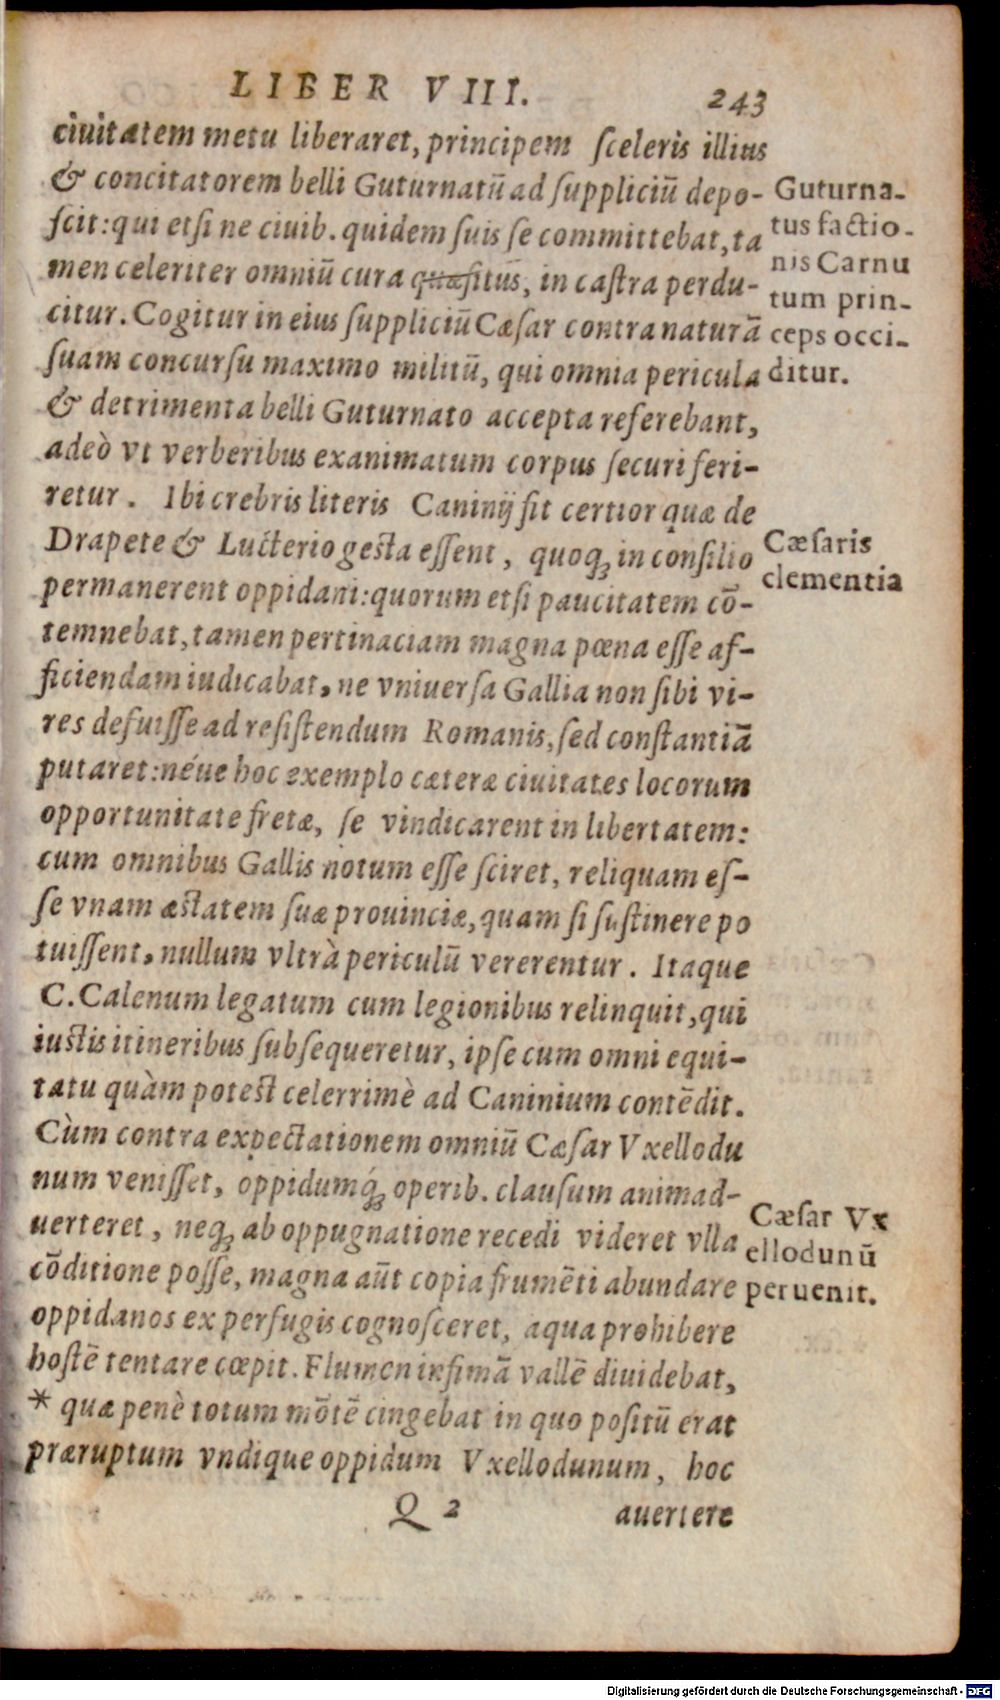 LIBER VIII. 243
ciuitatem metu liberaret, principem sceleris illius
& concitatorem belli Guturnatū ad suppliciū depo-
scit: qui etsi ne ciuib. quidem suis se committebat, ta
men celeriter omniū cura quæsitus, in castra perdu-
citur. Cogitur in eius suppliciū Cæsar contra naturā
suam concursu maximo militū, qui omnia pericula
& detrimenta belli Guturnato accepta referebant,
adeò vt verberibus exanimatum corpus securi feri-
retur. Ibi crebris literis Caninij fit certior quæ de
Drapete & Lucterio gesta essent, quoq; in consilio
permanerent oppidani: quorum etsi paucitatem cō-
temnebat, tamen pertinaciam magna pœna esse af-
ficiendam iudicabat, ne vniuersa Gallia non sibi vi-
res defuisse ad resistendum Romanis, sed constantiā
putaret: néue hoc exemplo cæteræ ciuitates locorum
opportunitate fretæ, se vindicarent in libertatem:
cum omnibus Gallis notum esse sciret, reliquam es-
se vnam æstatem suæ prouinciæ, quam si sustinere po
tuissent, nullum vltrà periculū vererentur. Itaque
C. Calenum legatum cum legionibus relinquit, qui
iustis itineribus subsequeretur, ipse cum omni equi-
tatu quàm potest celerrimè ad Caninium contēdit.
Cùm contra expectationem omniū Cæsar Vxellodu
num venisset, oppidumq́; operib. clausum animad-
uerteret, neq; ab oppugnatione recedi videret vlla
cōditione posse, magna aūt copia frumēti abundare
oppidanos ex perfugis cognosceret, aqua prohibere
hostē tentare cœpit. Flumen infimā vallē diuidebat,
* quæ penè totum mōtē cingebat in quo positū erat
præruptum vndique oppidum Vxellodunum, hoc
Q 2 auertere
Guturna-
tus factio-
nis Carnu
tum prin-
ceps occi-
ditur.
Cæsaris
clementia
Cæsar Vx
ellodunū
peruenit.
Digitalisierung gefördert durch die Deutsche Forschungsgemeinschaft - DFG